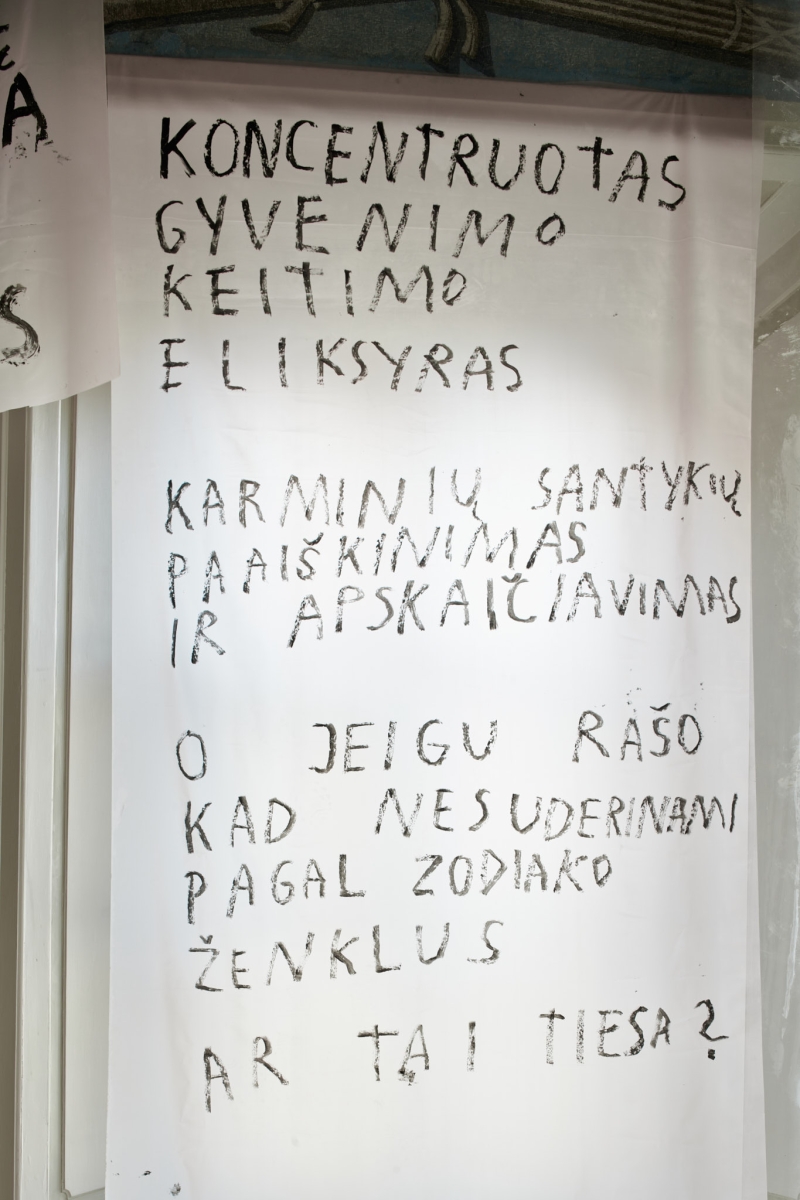 A
S
KONCENTRUOTAS
GYVENIMO
KEITIMO
ELIKSYRAS
KARMINIŲ SANTYKIŲ
PAAIŠKINIMAS
IR APSKAIČIAVIMAS
O JEIGU RAŠO
KAD NESUDERINAMI
PAGAL ZODIAKO
ŽENKLUS
AR TAI TIESA?